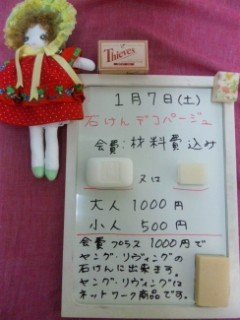 Thieves
1月7日(土)
石けんデコパージュ
会費:材料費込み
又は
大人 1000円
小人 500円
会費プラス1000円で
ヤング・リヴィングの
石けんに出来ます。
ヤング・リヴィングは
ネットワーク商品です。